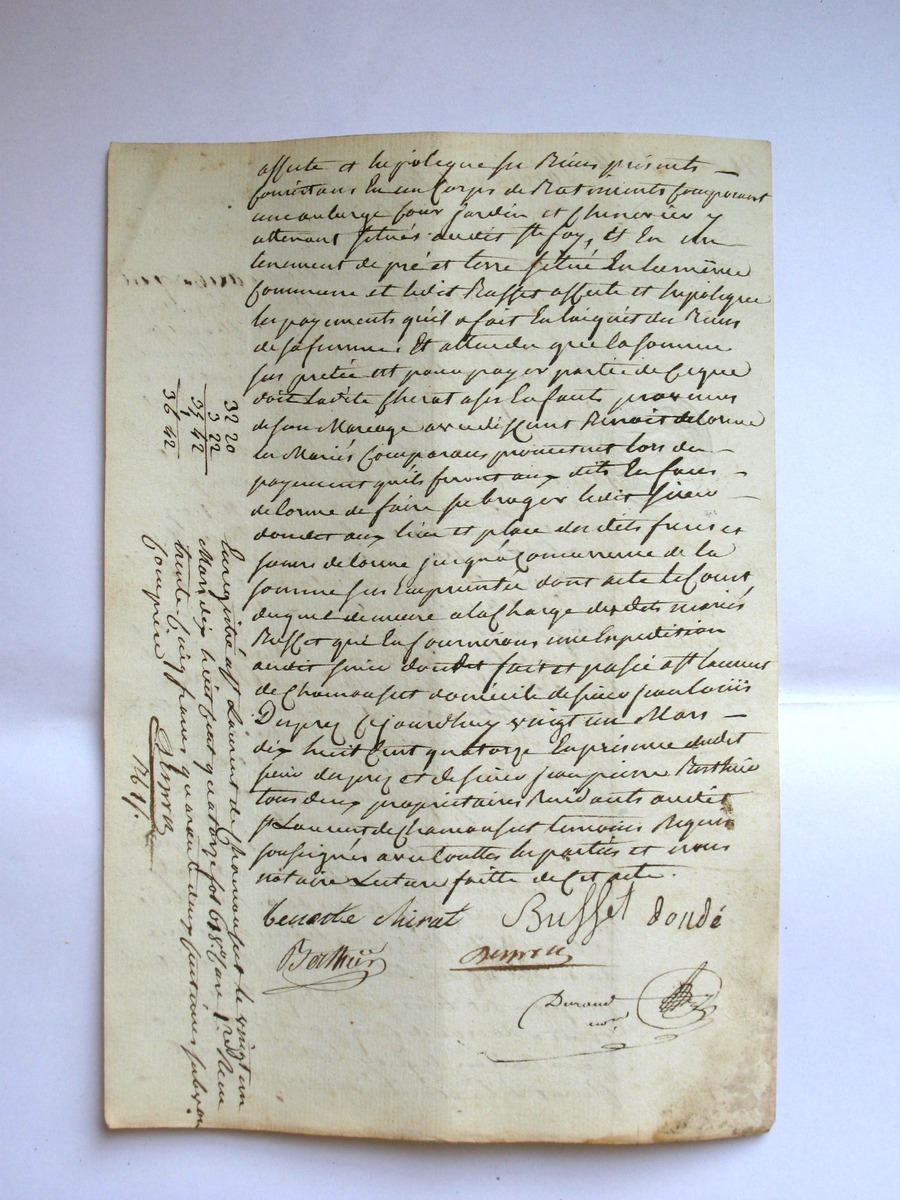 affecte et hipoteque ses Biens présents
consistans En un Corps de Batiments Composant
une auberge cour jardin et Chenevier y
attenant situés audit St foy, Et En un
tenement de pré et terre situé En la même
Commune et ledit Busset affecte et hipoteque
les payements qu'il a fait En lacquit des Biens
de sa femme. Et attendu que la somme
sus pretée est pour payer partie de Ce que
doit ladite Chirat a ses Enfants provenus
de son Mariage avec defunt Benoit delorme
les Mariés Comparans promettent lors du
payement qu'ils feront aux dits Enfans
delorme de faire subroger ledit sieur
dondet aux lieu et place desdits freres et
soeurs delorme jusqu'a Concurrence de la
somme sus Empruntée dont acte le Cout
duquel demeure a la Charge desdits mariés
Busset qui En fourniront une Expedition
audit sieur dondet fait et passé a St Laurent
de Chamousset domicile de sieur jean louis
Duprez Cejourdhuy vingt un Mars
dix huit Cent quatorze En presence dudit
sieur duprez et de sieur jean pierre Berthier
tous deux propriétaires Residants audit
St Laurent de Chamousset temoins Requis
soussignés avec touttes les parties et nous
notaire Lecture faitte de Cet acte.
benoite chirat Busset dondé
Berthier
Durand
nore
32 20
3 22
35 42
1
36 42
Enregistré a St Laurent de Chamousset le vingt un
Mars dix huit Cent quatorze fol 68
trente Cinq francs quarante deux Centimes subvon
Comprise